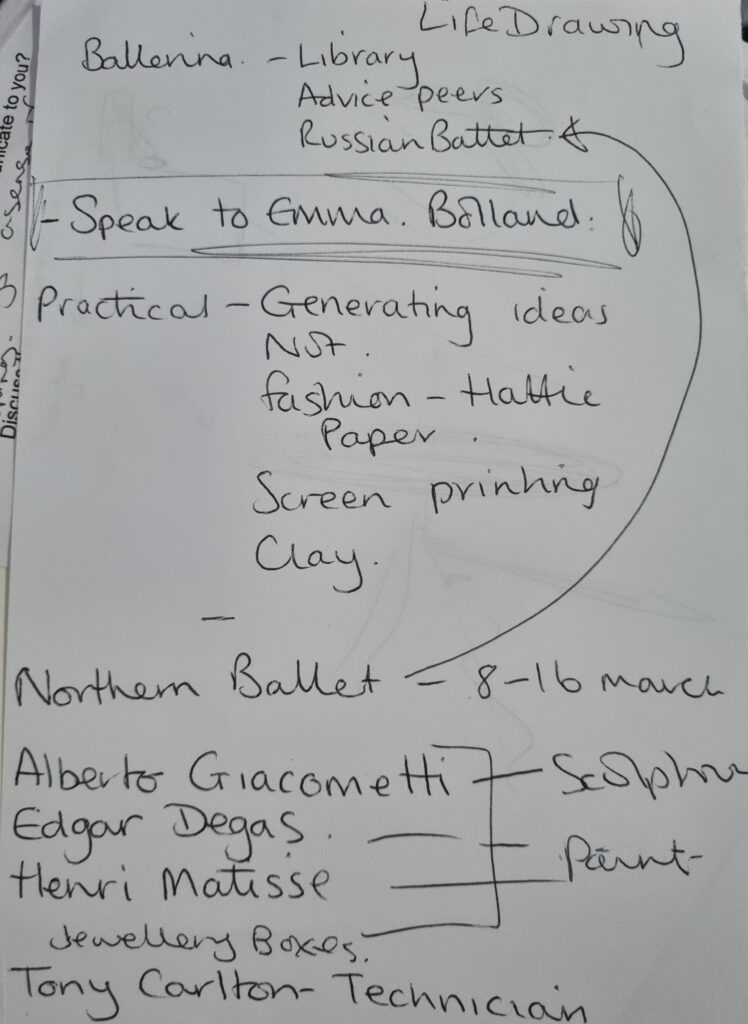 Life Drawing
Ballerina. - Library
Advice peers
Russian Ballet
- Speak to Emma. Bolland.
Practical - Generating ideas
Not.
fashion - Hattie
Paper.
Screen printing
Clay.
-
Northern Ballet - 8-16 march
Alberto Giacometti - Sculpture
Edgar Degas.
Henri Matisse - Paint
Jewellery Boxes.
Tony Carlton - Technician
nicate to you?
a sense
Discuss